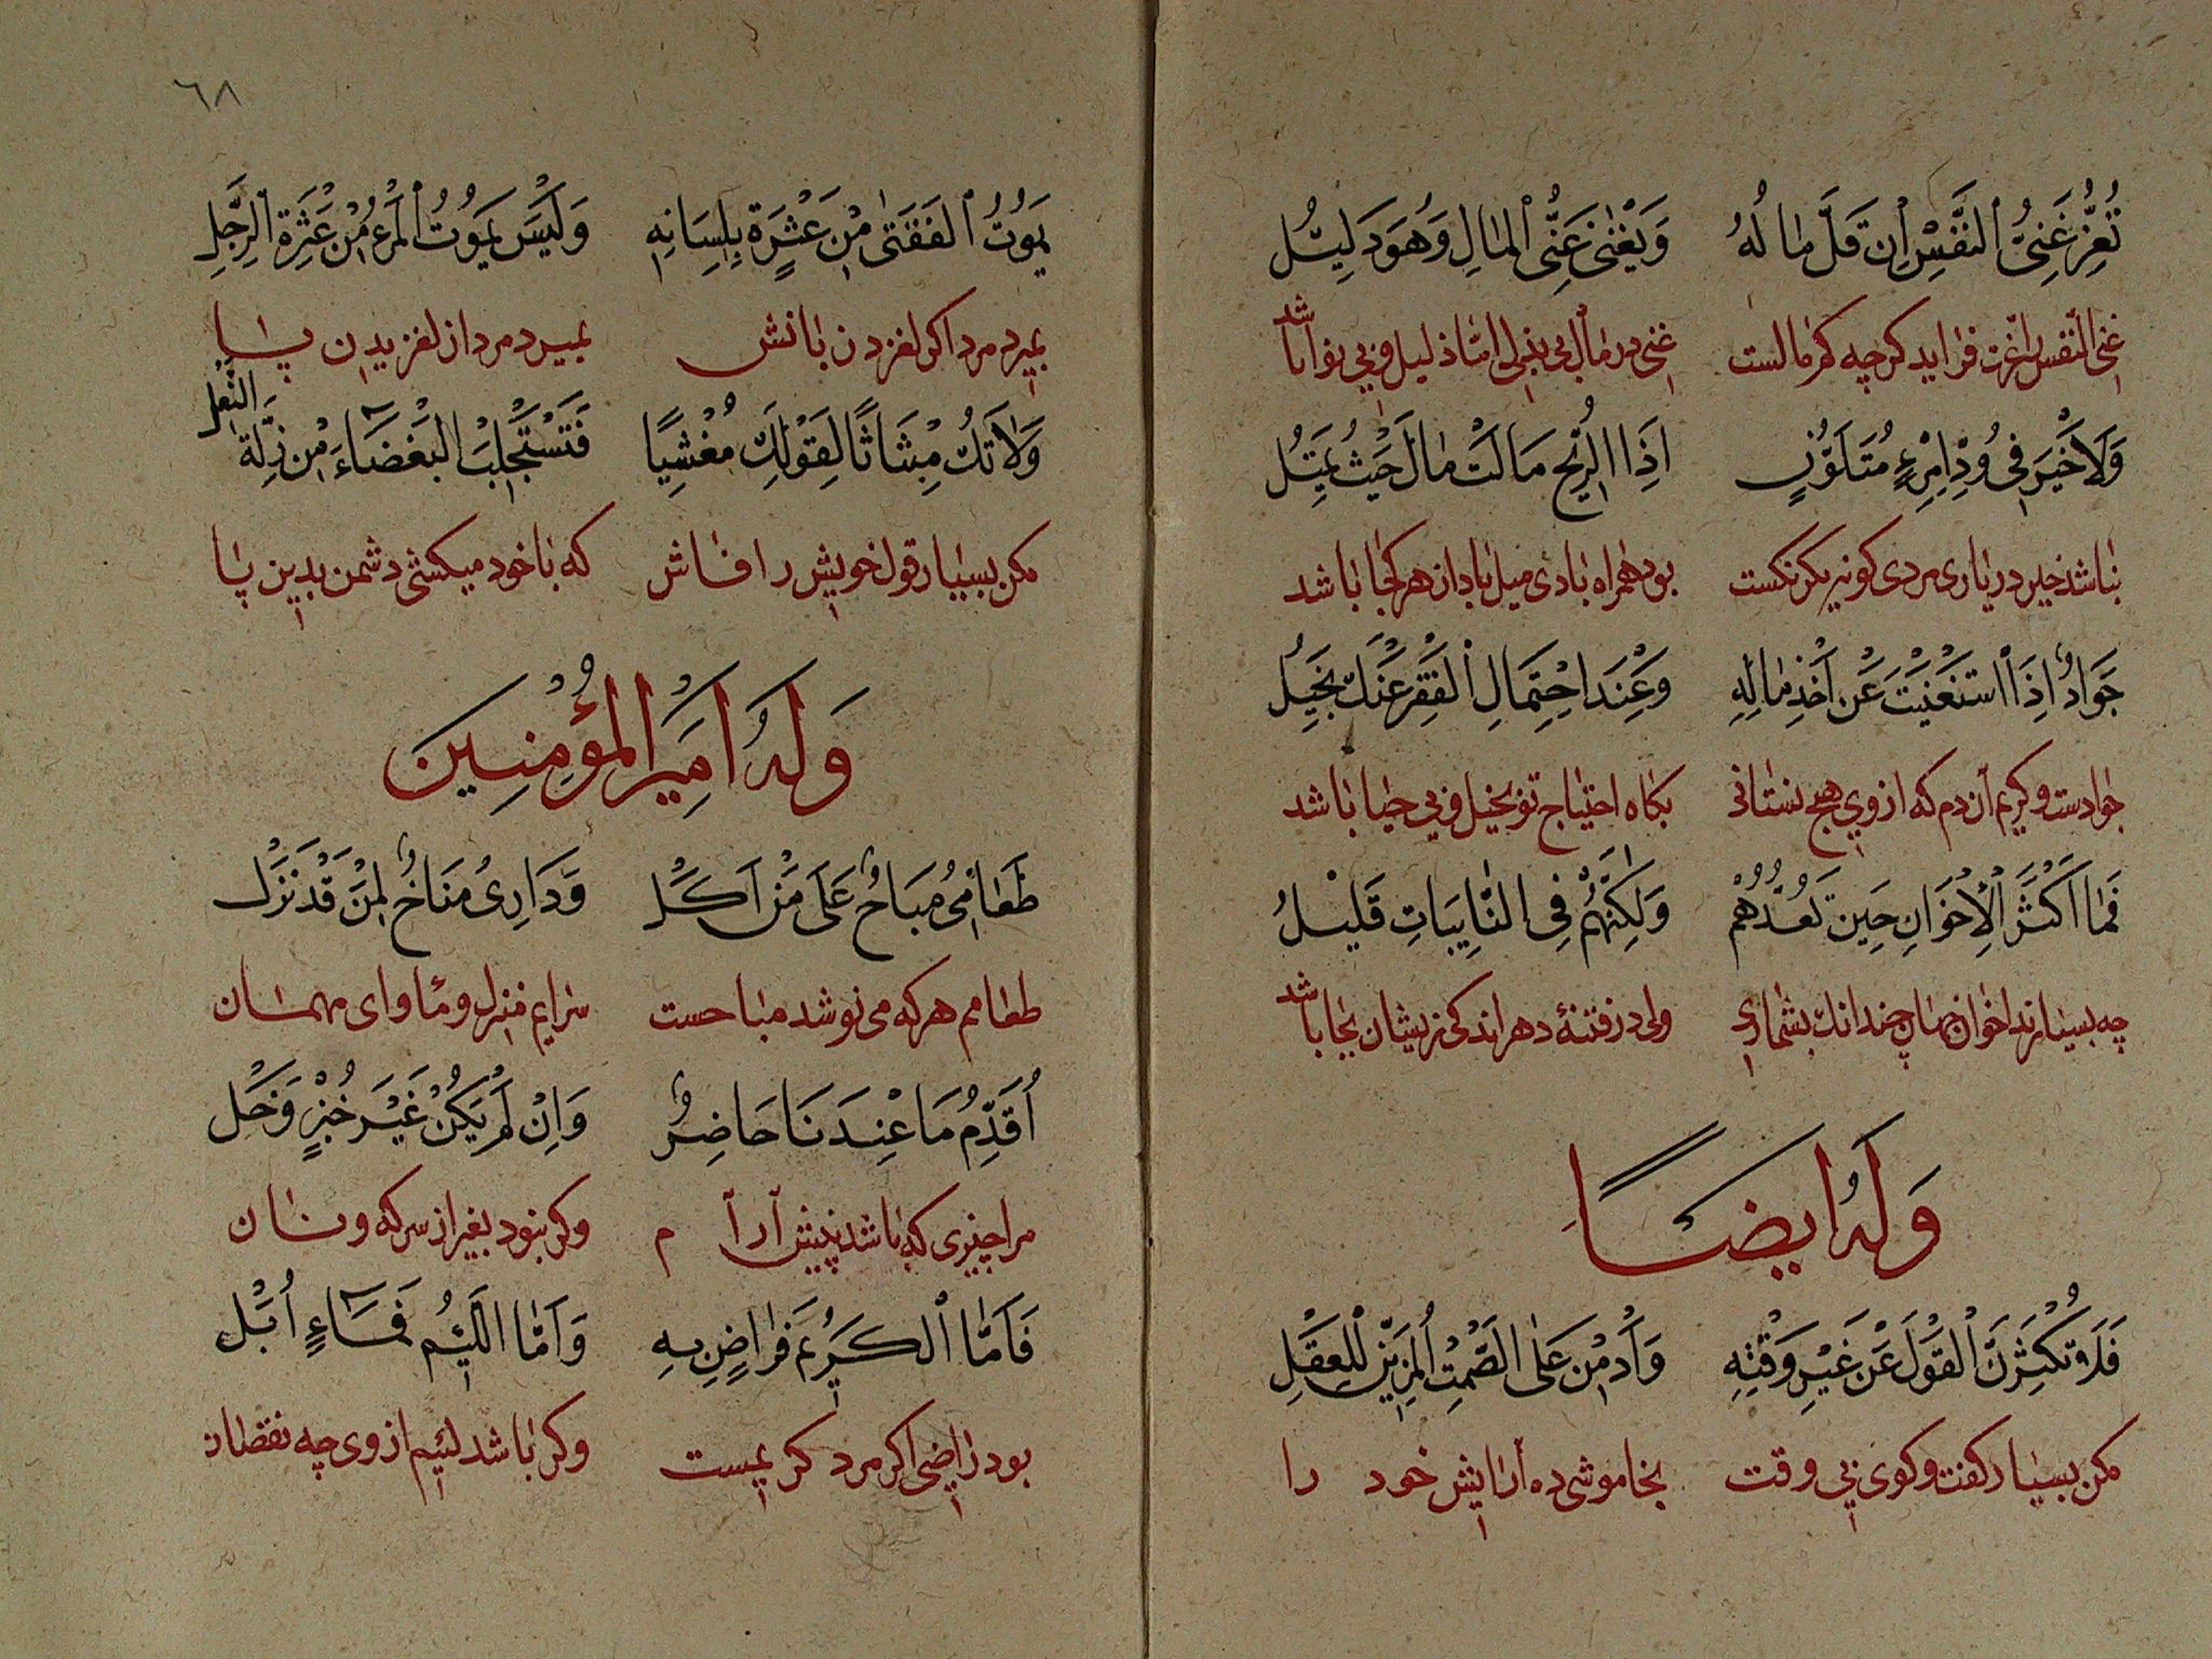 تُعِزُّ غَنِىُّ النَّفْسِ اِن قَلَّ مَا لُهُ وَيَغْنٰى غَنِّى المَالِ وَهُوَ دَلِيْلُ
غنی النفس را عزت فزاید کرچه کم مالست غنی در مال بی امّا ذلیل و بی نوا باشد
وَلَا خَيْرَ فِى وُدِّ امْرِءٍ مُتَلَوِّنٍ اِذَا الرِّيْحُ مَالَتْ مَالَ حَيْثُ يَمِيْلُ
نباشد خیر در یاری مردی کو نه یکرنکست بود همراه بادی میل باد از هر کجا باشد
جَوَادٌ اِذَا اسْتَغْنَيْتَ عَنْ اَخْذِ مَالِهِ وَعِنْدَ احْتِمَالِ الْفَقْرِ عَنْكَ بَخِيْلُ
جوادست و کریم آن دم که از وی هیچ نستانی بکاه احتیاج تو بخیل و بی حیا باشد
فَمَا اَكْثَرَ الْاِخْوَانِ حِيْنَ تَعُدُّهُمْ وَلٰكِنَّهُمْ فِى النَّايِبَاتِ قَلِيْلُ
چه بسیارند اخوان جهان چندانک بشماری ولی در فتنهٔ دهر اندکی زیشان بجا باشد
وَلَهُ اَيضًا
فَلَا تُكْثِرَنَّ الْقَوْلَ عَنْ غَيْرِ وَقْتِهِ وَأَدْمِنْ عَلَى الصَّمْتِ الْمُزَيِّنِ لِلْعَقْلِ
مکن بسیار کفت و کوی بی وقت بخاموشی ده آرایش خود را
٦٨
يَمُوْتُ الفَتٰى مِنْ عَثْرَةٍ بِلِسَانِهِ وَلَيْسَ يَمُوْتُ الْمَرْءُ مِنْ عَثْرَةِ الرِّجْلِ
بمیرد مرد اکر لغزد زبانش نمیرد مرد از لغزیدن پا
وَلَا تَكُ مِبْثَاثًا لِقَوْلِكَ مُفْشِيًا فَتَسْتَجْلِبَ الْبَغْضَاءَ مِنْ زَلَّةِ النَّعْلِ
مکن بسیار قول خویش را فاش که با خود میکشی دشمن بدین پا
وَلَهُ اَمِيْرَ الْمُؤْمِنِيْنَ
طَعَامِىُ مُبَاحٌ عَلَى مَنْ اَكَلْ وَدَارِىُ مَنَاخٌ لِمَنْ قَدْ نَزَلْ
طعامم هر که می نوشد مباحست سرایم منزل و مأوای مهمان
أُقَدِّمُ مَا عِنْدَنَا حَاضِرٌ وَاِنْ لَمْ يَكُنْ غَيْرَ خُبْزٍ وَخَلْ
مرا چیزی که باشد پیش آرآم وکر نبود بغیر از سرکه و نان
فَاَمَّا الْكَرِيْمُ فَرَاضٍ بِهِ وَاَمَّا اللَّئِيْمُ فَمَاءٍ أُبَلْ
بود راضی اکر مرد کریمست وکر باشد لئیم از وی چه نقصان